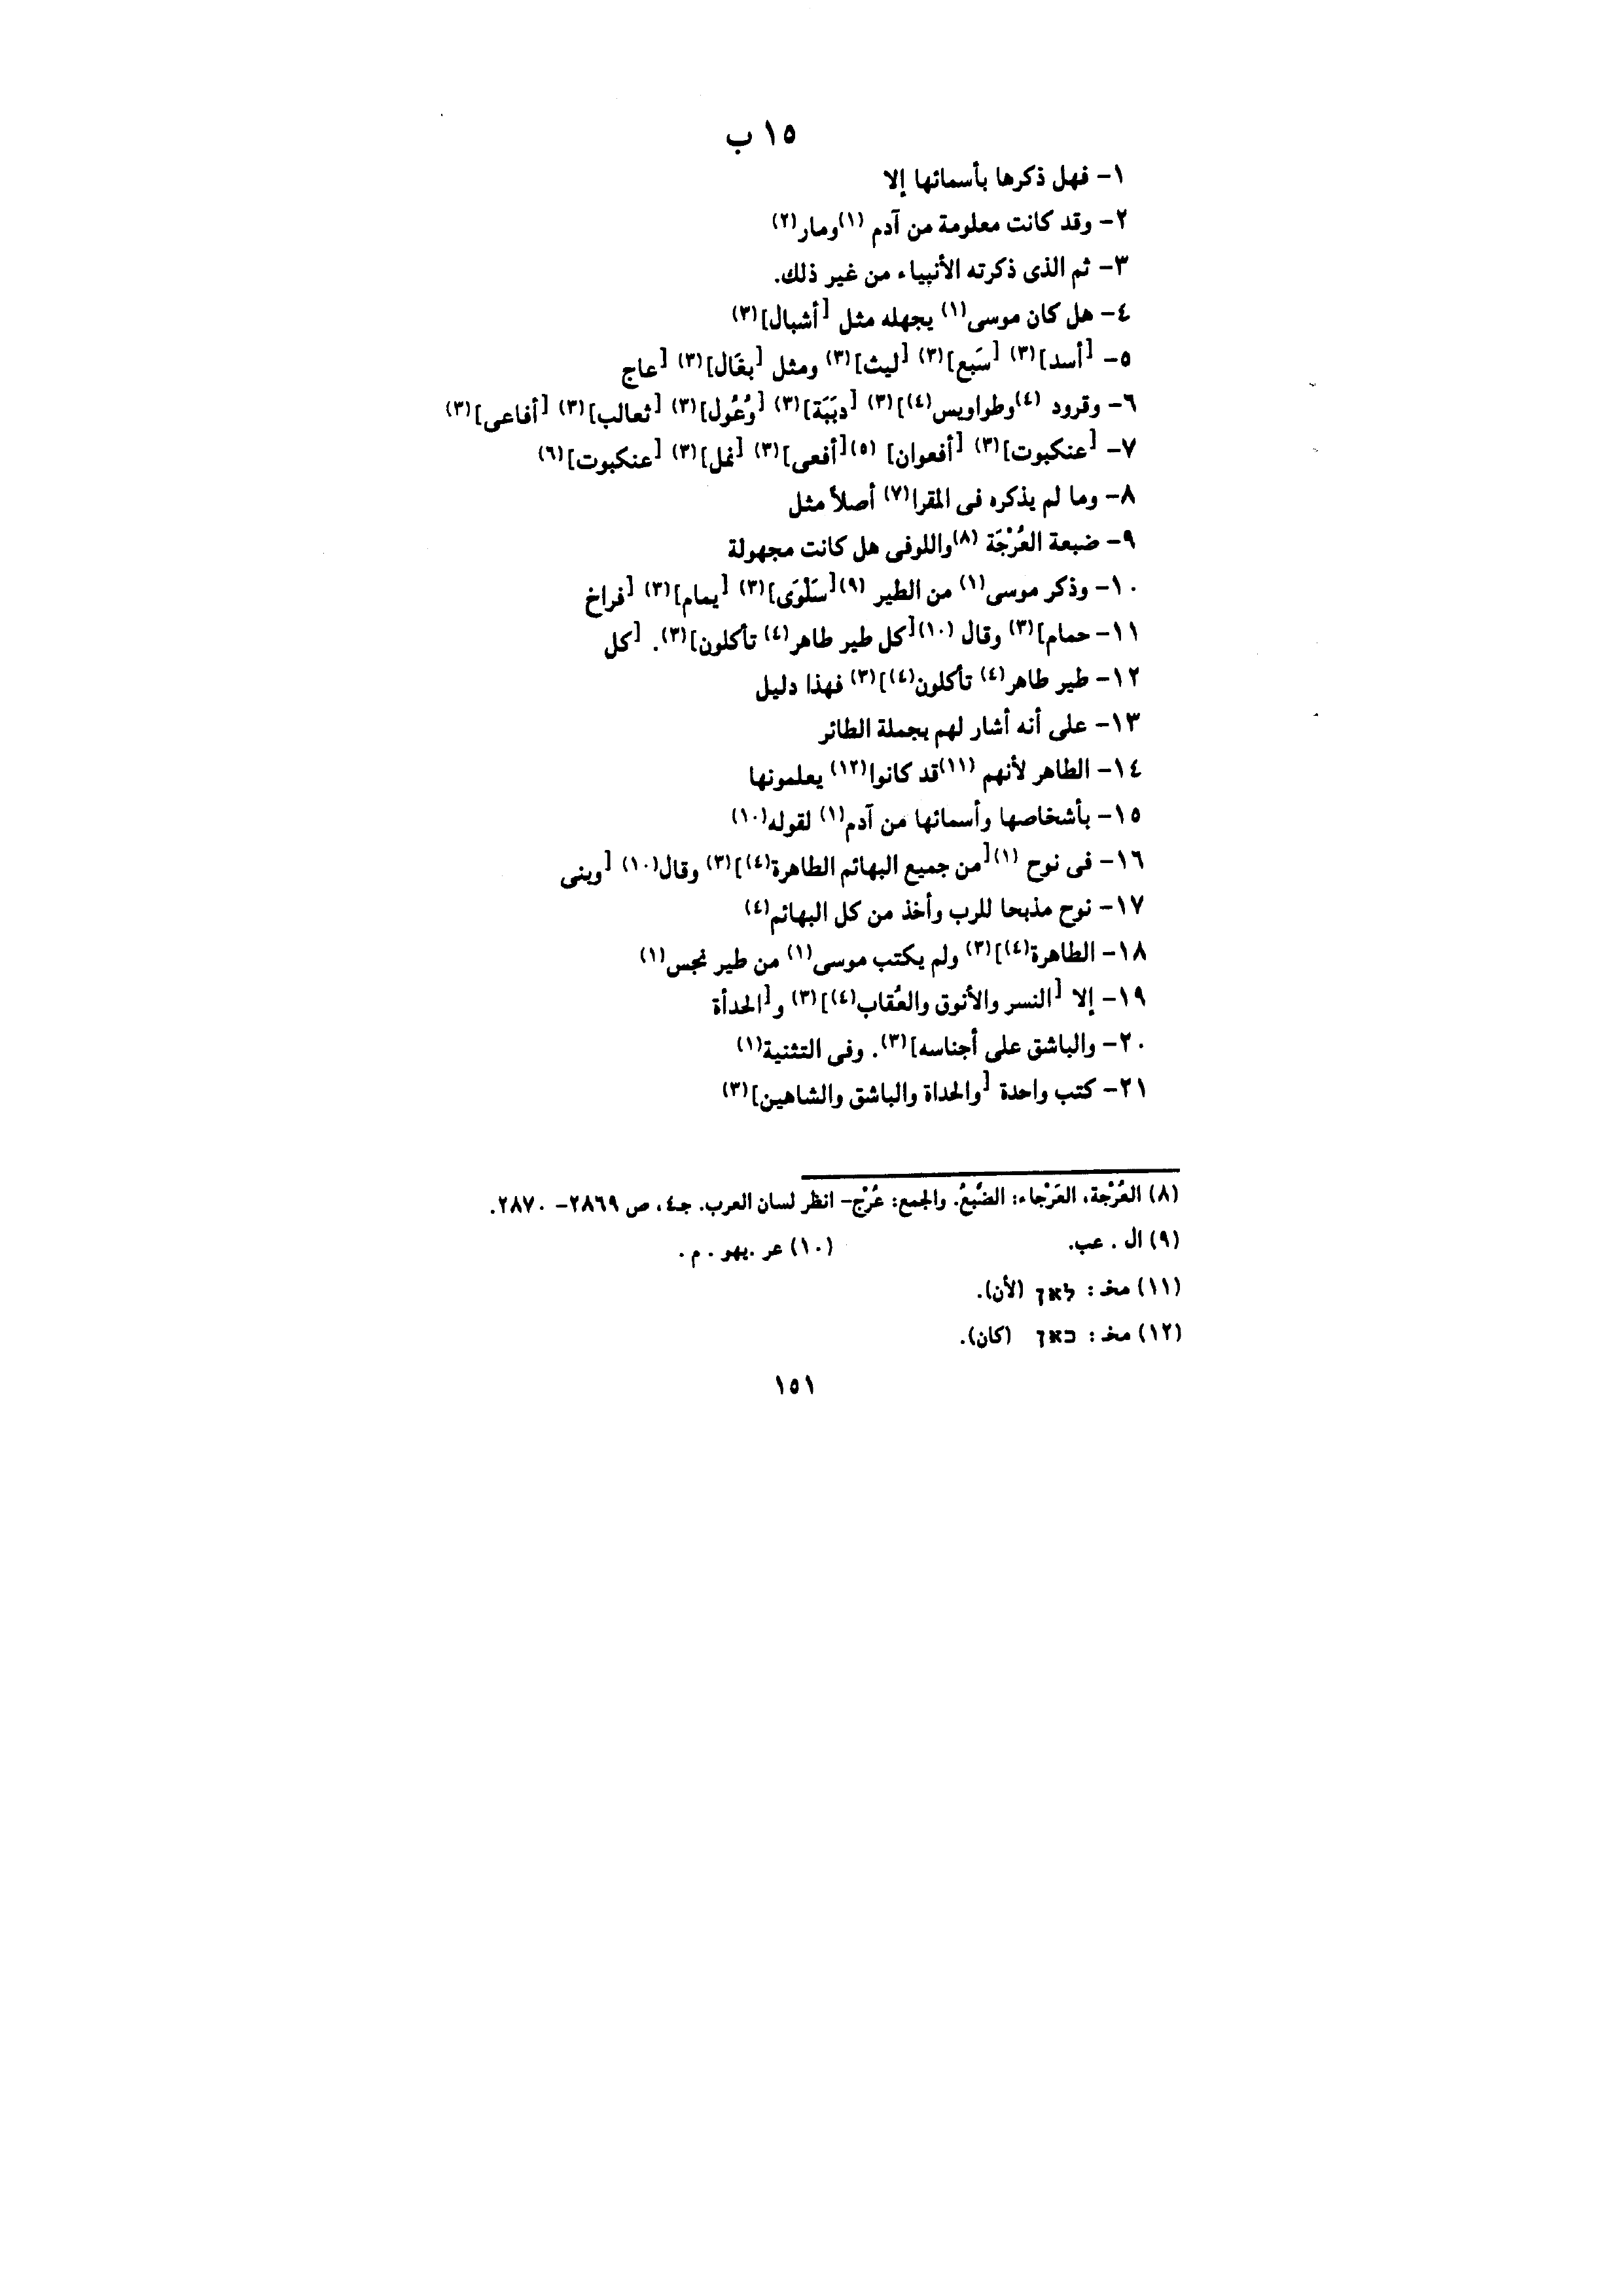 ١٥ ب
١- فهل ذكرها بأسمائها إلا
٢- وقد كانت معلومة من آدم (١)ومار(٢)
٣- ثم الذى ذكرته الأنبياء من غير ذلك.
٤- هل كان موسى(١) يجهله مثل [أشبال](٣)
٥- [أسد](٣) [سَبع](٣) [ليث](٣) ومثل [بغَال](٣) [عاج
٦- وقرود (٤)وطواويس(٤)](٣) [دبَبَة](٣) [وُعُول](٣) [ثعالب](٣) [أفاعى](٣)
٧- [عنكبوت](٣) [أفعوان] (٥)[أفعى](٣) [نمل](٣) [عنكبوت](٦)
٨- وما لم يذكره فى المقرا(٧) أصلاً مثل
٩- ضبعة العُرْجَة (٨)واللوفى هل كانت مجهولة
١٠- وذكر موسى(١) من الطير (٩)[سَلْوَى](٣) [يمام](٣) [فراخ
١١- حمام](٣) وقال (١٠)[كل طير طاهر(٤) تأكلون](٣). [كل
١٢- طير طاهر(٤) تأكلون(٤)](٣) فهذا دليل
١٣- على أنه أشار لهم بجملة الطائر
١٤- الطاهر لأنهم (١١)قد كانوا(١٢) يعلمونها
١٥- بأشخاصها وأسمائها من آدم(١) لقوله(١٠)
١٦- فى نوح (١)[من جميع البهائم الطاهرة(٤)](٣) وقال(١٠) [وبنى
١٧- نوح مذبحا للرب وأخذ من كل البهائم(٤)
١٨- الطاهرة(٤)](٣) ولم يكتب موسى(١) من طير نجس(١)
١٩- إلا [النسر والأنوق والعُقاب(٤)](٣) و[الحدأة
٢٠- والباشق على أجناسه](٣). وفى التثنية(١)
٢١- كتب واحدة [والحداة والباشق والشاهين](٣)
(٨) العُرْجة، العَرْجاء: الضَّبعُ. والجمع: عُرْج- انظر لسان العرب. جـ٤، ص ٢٨٦٩- ٢٨٧٠.
(٩) ال . عب. (١٠) عر .يهو . م .
(١١) مخـ : לאן (لأن).
(١٢) مخـ : כאן (كان).
١٥١